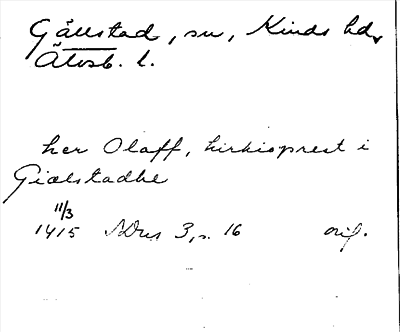 Gällstad, sn, Kinds hd,
Älvsb. l.
her Olaff, kirkioprest i
Giælstadhe
11/3
1415 SDns 3, s. 16 orig.